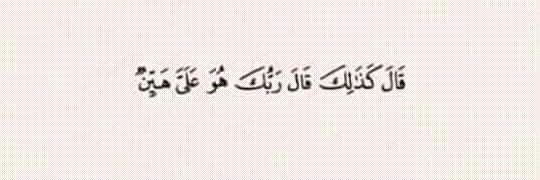 قَالَ كَذَٰلِكَ قَالَ رَبُّكَ هُوَ عَلَىَّ هَيِّنٌ